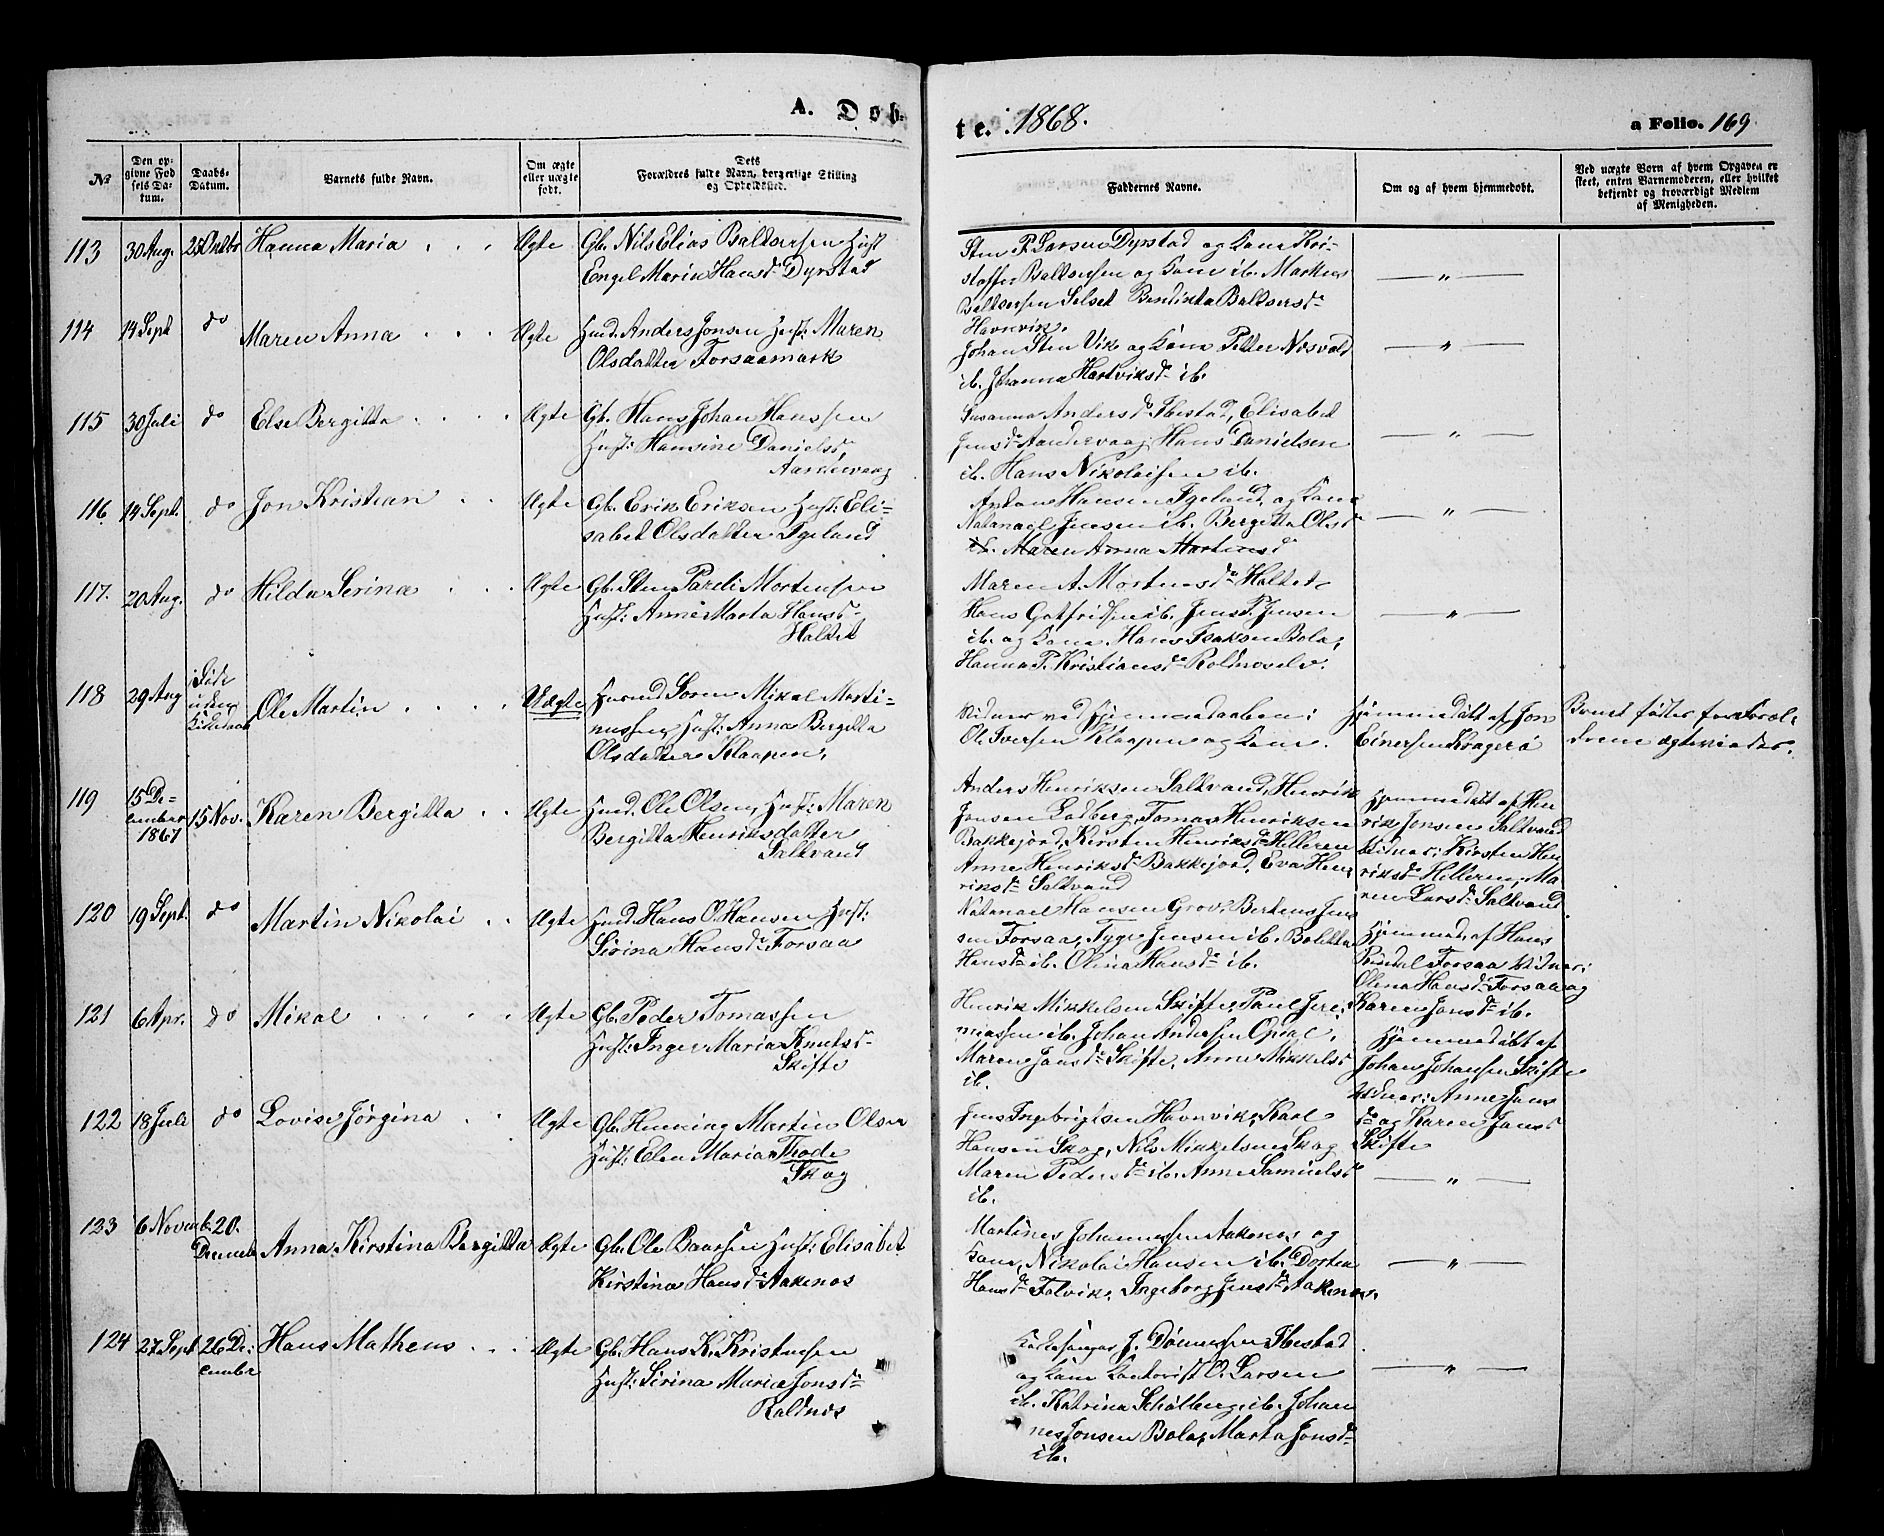 A. Døb-
te. 1868.
a Folio. 169
No
Den op-
givne Fød
sels Da-
tum.
Daabs-
Datum.
Barnets fulde Navn.
Om ægte
eller uægte
født.
Dets
Forældres fulde Navn, borgerlige Stilling
og Opholdssted.
Faddernes Navne.
Om og af hvem hjemmedøbt.
Ved uægte Børn af hvem Opgaven er
skeet, enten Barnemoderen, eller hvilket
bekjendt og troværdigt Medlem
af Menigheden.
113 30 Aug. 25 Oktbr Hanna Maria Ægte Gb. Nils Elias Baltsersen Hust
Engel Marin Hansd. Dyrstad
Sten P. Larsen Dyrstad og Kone Kri-
stoffer Baltsersen og Kone ib. Markus
Baltsersen Selset Bendikta Baltsersd.
Havnvik.
— " —
114 14 Sept do Maren Anna Ægte Husmd. Anders Jonsen Hust. Maren
Olsdatter Forsaamark
Johan Sten Vik og Kone Petter Nisvold
ib. Johanna Hartviksd. ib.
— " —
115 30 Juli do Else Bergitta Ægte Gb. Hans Johan Hanssen
Hust: Hansine Danielsd.
Aandervaag
Susanna Andersd. Ibestad, Elisabet
Jensd. Aandervaag, Hans Danielsen
ib. Hans Nikolaisen ib.
— " —
116 14 Sept. do Jon Kristian Ægte Gb. Erik Eriksen Hust: Eli-
sabet Olsdatter Igeland
Anton Hansen Igeland og Kone
Natanael Jensen ib. Bergitta Olsd
ib. Maren Anna Martensd
— " —
117. 20 Aug. do Hilda Serina Ægte Gb. Sten Pareli Mortensen
Hust: Anne Marta Hansd.
Haltet
Maren A. Mortensd. Haltet
Hans Gotfridsen ib. Jens P. Jensen
ib. og Kone. Hans Isaksen Bola,
Hanna P. Kristiansd. Roldnoselv.
— " —
118 29 Aug Død
uden
Kirkedaab Ole Martin Uægte Husmd Soren Mikal Marti-
nussen Hust: Anna Bergitta
Olsdatter Klaapen.
Vidner ved Hjemmedaaben:
Ole Iversen Klaapen og Kone.
Hjemmedøbt af Jon
Einersen Kragerø
Barnet født før Foræl-
drenes Ægtevielse.
119 15 De-
cember
1867 15 Nov. Karen Bergitta Ægte Husmd. Ole Olsen, Hust: Maren
Bergitta Henriksdatter
Saltvand
Anders Henriksen Saltvand, Henrik
Jonsen Ladberg, Tomas Henriksen
Bakkejord, Kirsten Henriksd. Hilleren
Anne Henriksd. Bakkejord, Eva Hen-
riksd. Saltvand
Hjemmedøbt af Hen
rik Jonsen Saltvand
Vidner: Kirsten Hen
riksd. Hilleren, Ma
ren Larsd. Saltvand
120 19 Sept. do Martin Nikolai Ægte Husmd. Hans O. Hansen Hust:
Sirina Hansd. Forsaa
Natanael Hansen Grov, Bertens Jen
sen Forsaa, Tyge Jensen ib. Bolitta
Hansd. ib. Olina Hansd. ib.
Hjemmed. af Hans
Forsaa Vidner:
Olina Hansd. Forsaa og
Karen Jonsd. ib.
121 6 Apr. do Mikal Ægte Gb. Peder Tomassen
Hust: Inger Maria Knutsd.
Skifte
Henrik Mikkelsen Skifte, Paul Jere-
miassen ib. Johan Andersen
Maren Jansd. Skifte, Anne Mikkelsd
ib.
Hjemmedøbt af
Johan Johansen Skifte
Vidner: Anne Jans
d. og Karen Jansd
Skifte
122 18 Juli do Lovise Jørgina Ægte Gb. Henning Martin Olsen
Hust: Elen Maria Thode
Skog
Jens Ingebrigtsen Havnvik, Karl
Hansen Skog, Nils Mikkelsen Skog
Maren Pedersd. ib. Anne Samuelsd
ib.
— " —
123 6 Novemb. 20.
Decemb Anna Kirstina Bergitta Ægte Gb. Ole Baarsen Hust: Elisabet
Kirstina Hansd. Aakenes
Martines Johannessen Aakenes og
Kone, Nikolai Hansen ib. Dortea
Hansd. Falvik. Ingeborg Jensd. Aakenes.
— " —
124 27 Sept 26 De-
cember Hans Matheus Ægte Gb. Hans K. Kristensen
Hust: Sirina Maria Jonsd.
Roldnes
Kirkesanger J. Dønnesen Ibestad
og Kone O. Larsen
ib. Katrina Schølberg ib. Johan
nes Jonsen Bola, Marta Jonsd.
ib.
— " —